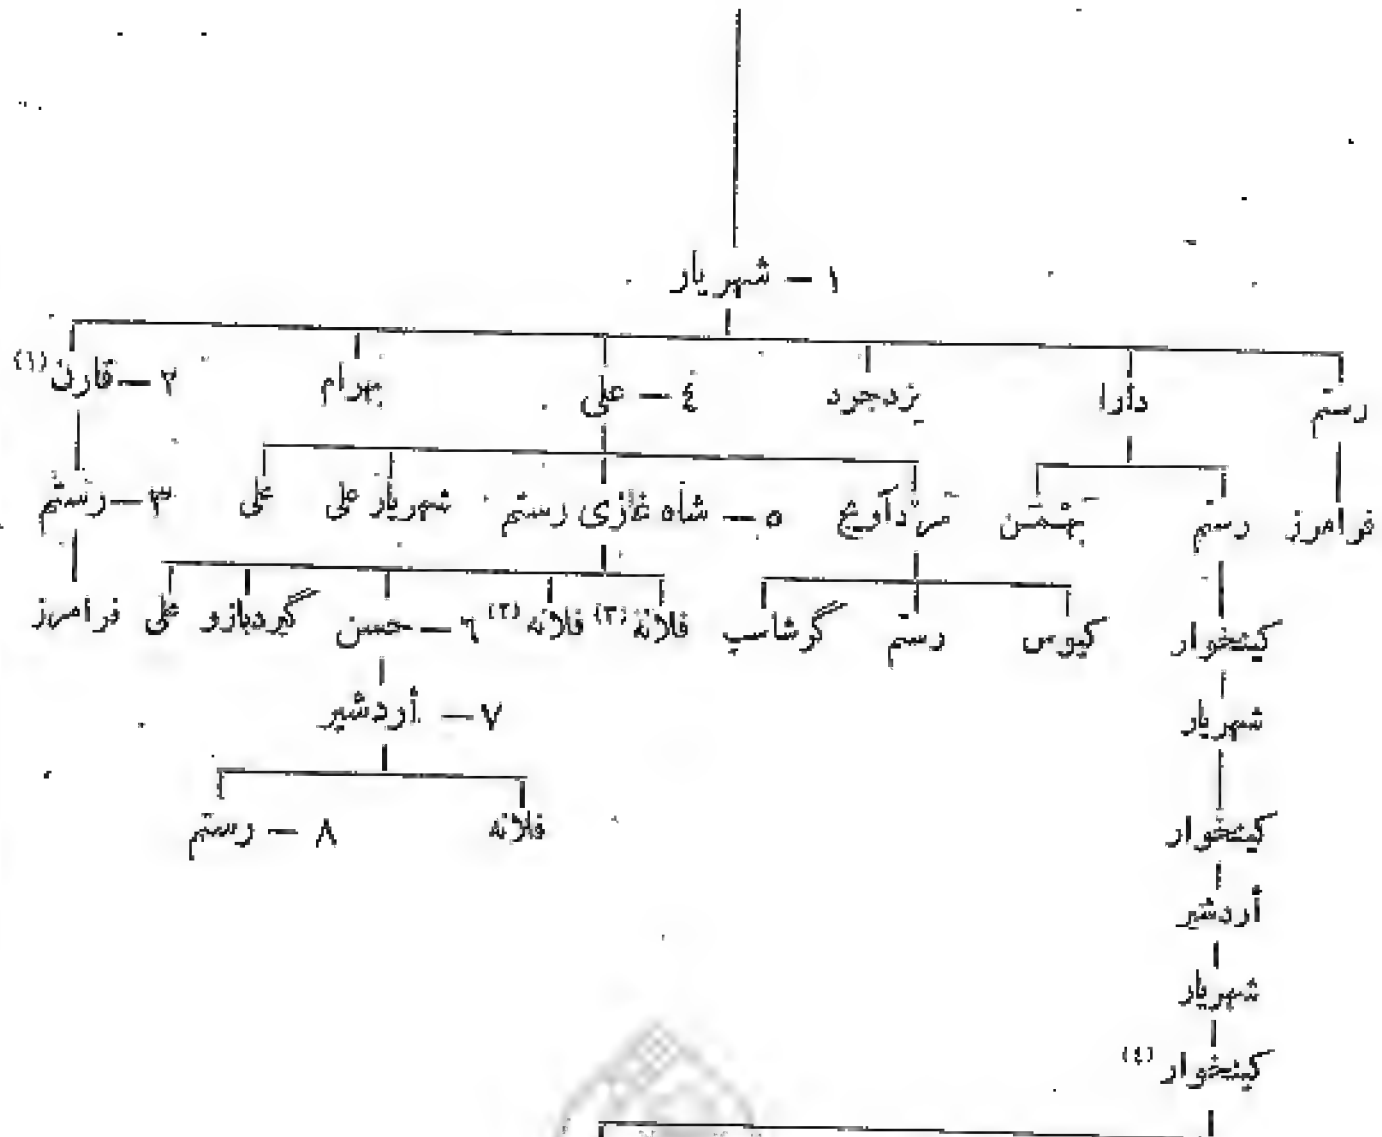 ١ – شهريار
رستم دارا يزدجرد ٤ – على بهرام ٢ – قارن (١)
فرامرز رستم بهمن مرداويج ٥ – شاه غازى رستم شهريار على على ٣ – رستم
كيخوار كيوس رستم گرشاسپ فلانة (٣) فلانه (٢) ٦ – حسن گيردبازو على فرامرز
شهريار ٧ – أردشير
كيخوار فلانه ٨ – رستم
أردشير
شهريار
كيخوار (٤)